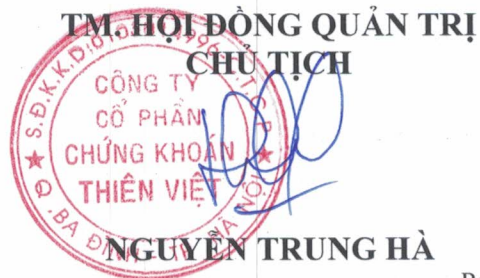 TM. HỘI ĐỒNG QUẢN TRỊ
CHỦ TỊCH
CÔNG TY
CỔ PHẦN
CHỨNG KHOÁN
THIÊN VIỆT
NGUYỄN TRUNG HÀ